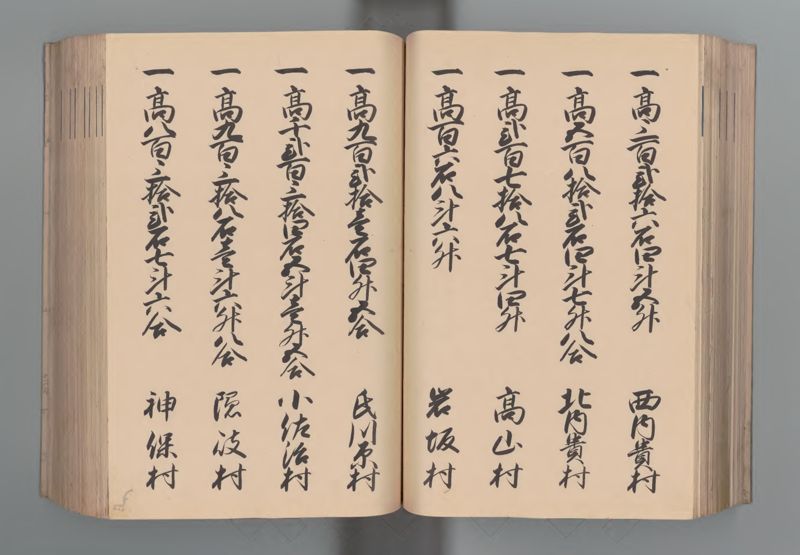 一高三百弐拾六石四斗五升 西内貴村
一高六百八拾弐石四斗七升八合 北内貴村
一高弐百七拾八石七斗四升 高山村
一高百六石八斗六升 岩坂村
一高九百弐拾壱石四升五合 氏川原村
一高千弐百三拾四石五斗壱升五合 小佐治村
一高九百三拾八石壱斗六升八合 隠岐村
一高八百三拾弐石七斗六合 神保村